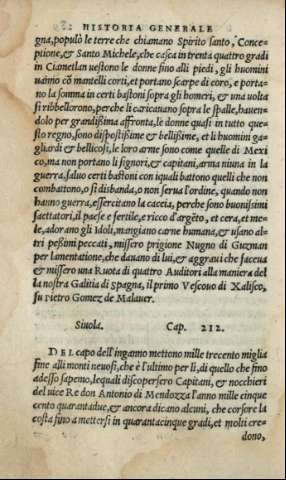 HISTORIA GENERALE
gna, populò le terre che chiamano Spirito santo, Conce-
ptione, & Santo Michele, che casca in trenta quattro gradi
in Cianetlan uestono le donne fino alli piedi, gli huomini
uanno cõ mantelli corti, et portano scarpe di coro, e porta-
no la somma in certi bastoni sopra gli homeri, & una uolta
si ribbellorono, perche li caricauano sopra le spalle, hauen-
dolo per grandissima affronta, le donne quasi in tutto que-
sto regno, sono dispostissime & bellissime, et li huomini ga-
gliardi & bellicosi, le loro arme sono come quelle di Mexi
co, ma non portano li signori, & capitani, arma niuna in la
guerra, saluo certi bastoni con iquali battono quelli che non
combattono, o si disbanda, o non serua l'ordine, quando non
hanno guerra, essercitano la caccia, perche sono buonissimi
saettatori, il paese e fertile, e ricco d'argẽto, et cera, et me-
le, adorano gli Idoli, mangiano carne humana, & usano al-
tri pessimi peccati, missero prigione Nugno di Guzman
per lamentatione, che dauano di lui, & aggraui che faceua
& missero una Ruota di quattro Auditori alla maniera del
la nostra Galitia di Spagna, il primo Vescouo di Xalisco,
fu Pietro Gomez de Malauer.
Siuola. Cap. 212.
DEL capo dell'inganno mettono mille trecento miglia
fine alli monti neuosi, che è l'ultimo per lì, di quello che fino
adesso sapemo, lequali discopersero Capitani, & nocchieri
del uice Re don Antonio di Mendozza l'anno mille cinque
cento quarantadue, & ancora dicano alcuni, che corsore la
costa fino a mettersi in quarantacinque gradi, et molti cre-
dono,